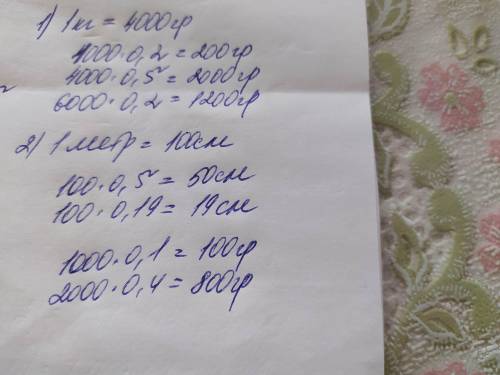 1) 1 кг = 1000гр
1000·0,2=200гр
4000·0,5=2000гр
6000·0,2=1200гр
2) 1 метр = 100см
100·0,5=50см
100·0,19=19см
1000·0,1=100гр
2000·0,4=800гр